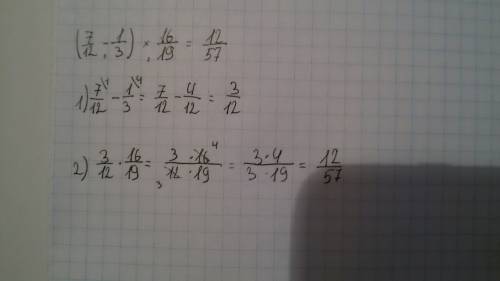 (7/12 - 1/3) × 16/19 = 12/57
1) 7\1/12 - 1\4/3 = 7/12 - 4/12 = 3/12
2) 3/12 · 16/19 = 3 · 16 4/3 12 · 19 = 3 · 4/3 · 19 = 12/57